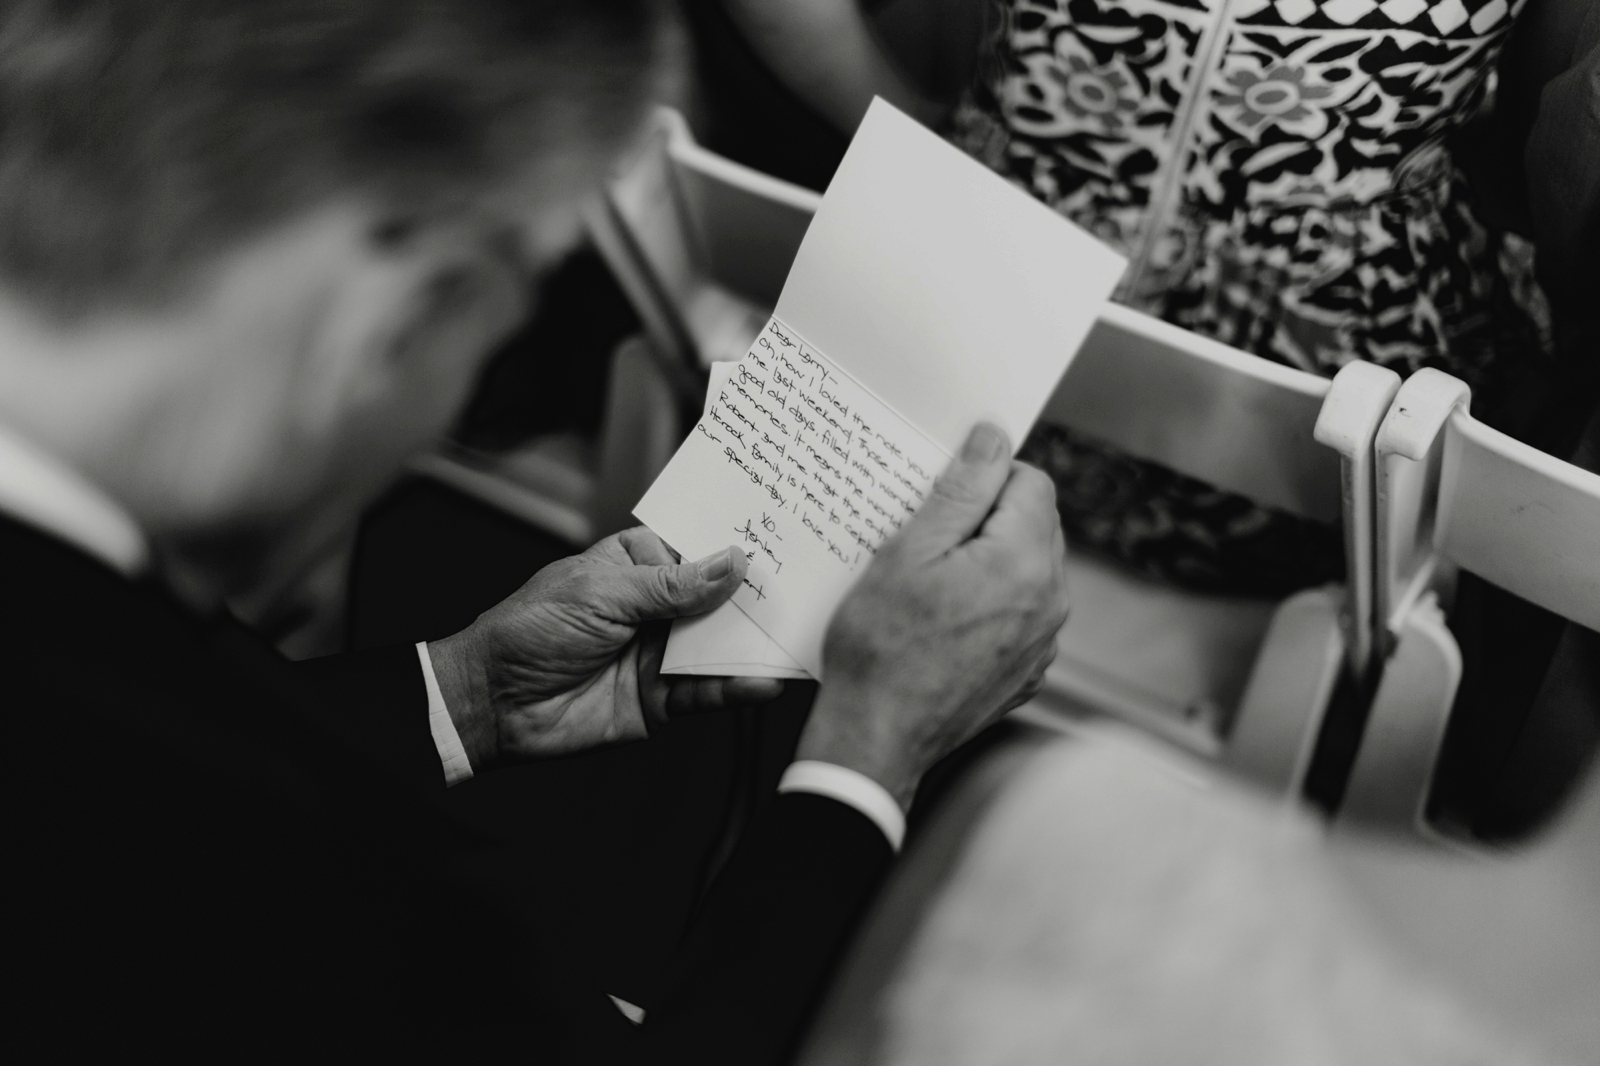 Dear Larry-
Oh, how I loved the note you
me last weekend. Those were
good old days, filled with wonder
memories. It means the world
Robert and me that the enti
Herock family is here to cele
our special day. I love you!
XO-
Ashley
&
ert